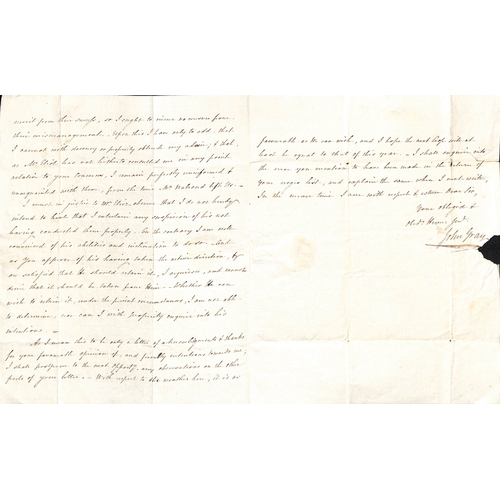 merit from their success, so I ought to incur no censure from
their mismanagement. — Upon this I have only to add, that
I cannot with decency or propriety obtrude my advice, & that
as Mr Eliot has not hitherto consulted me in any point
relation to your concerns, I remain perfectly uninformed &
unacquainted with them, from the time Mr left Us. —
I must in justice to Mr Eliot observe that I do not hereby
intend to hint that I entertain any suspicion of his not
having conducted them properly. On the contrary I am well
convinced of his abilities and inclination to do so. — And
as You approve of his having taken the active direction, &
are satisfied that He should retain it, I acquiesce, and cannot
desire that it should be taken from Him. — Whether He can
wish to retain it, under the present circumstances, I am not able
to determine, nor can I with propriety enquire into his
intentions. —
As I mean this to be only a letter of acknowledgements & thanks
for your favourable opinion of, and friendly intentions towards me,
I shall postpone to the next Opporty any observations on the other
parts of your letter. — With respect to the weather here, it is as
favourable as We can wish, and I hope the next Crop will at
least be equal to that of this year. — I shall enquire into
the error you mention to have been made in the return of
your negro list, and explain the same when I next write,
In the mean time I am with respect & esteem Dear Sir,
Your obliged &
Obedt Humle Servt
John Gray